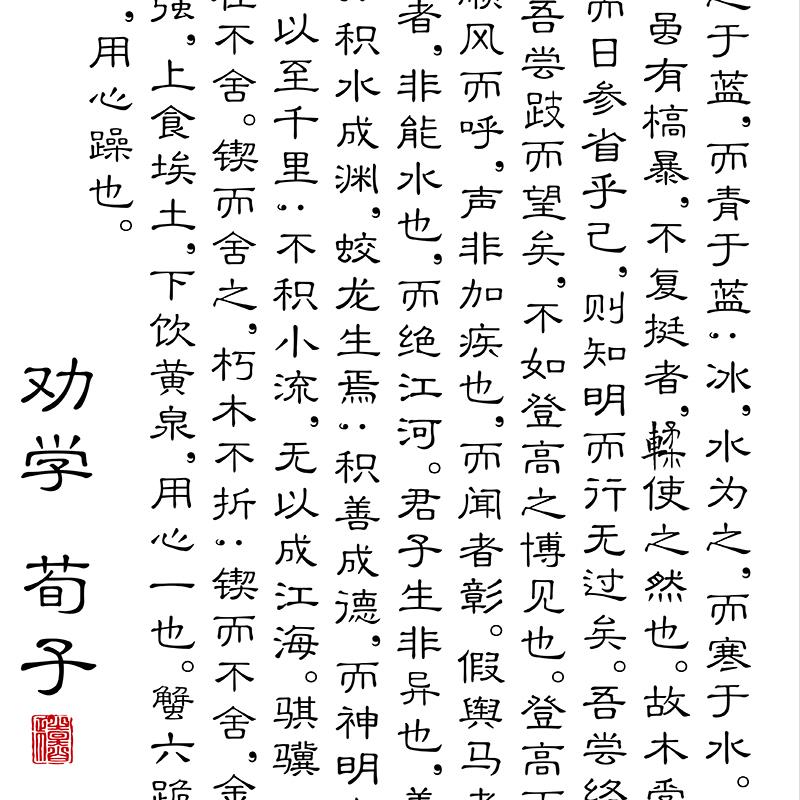 之于蓝，而青于蓝；冰，水为之，而寒于水。
虽有槁暴，不复挺者，輮使之然也。故木受
而日参省乎己，则知明而行无过矣。吾尝终
吾尝跂而望矣，不如登高之博见也。登高而
顺风而呼，声非加疾也，而闻者彰。假舆马者
者，非能水也，而绝江河。君子生非异也，善
；积水成渊，蛟龙生焉；积善成德，而神明
以至千里；不积小流，无以成江海。骐骥
在不舍。锲而舍之，朽木不折；锲而不舍，金
强，上食埃土，下饮黄泉，用心一也。蟹六跪
，用心躁也。
劝学 荀子